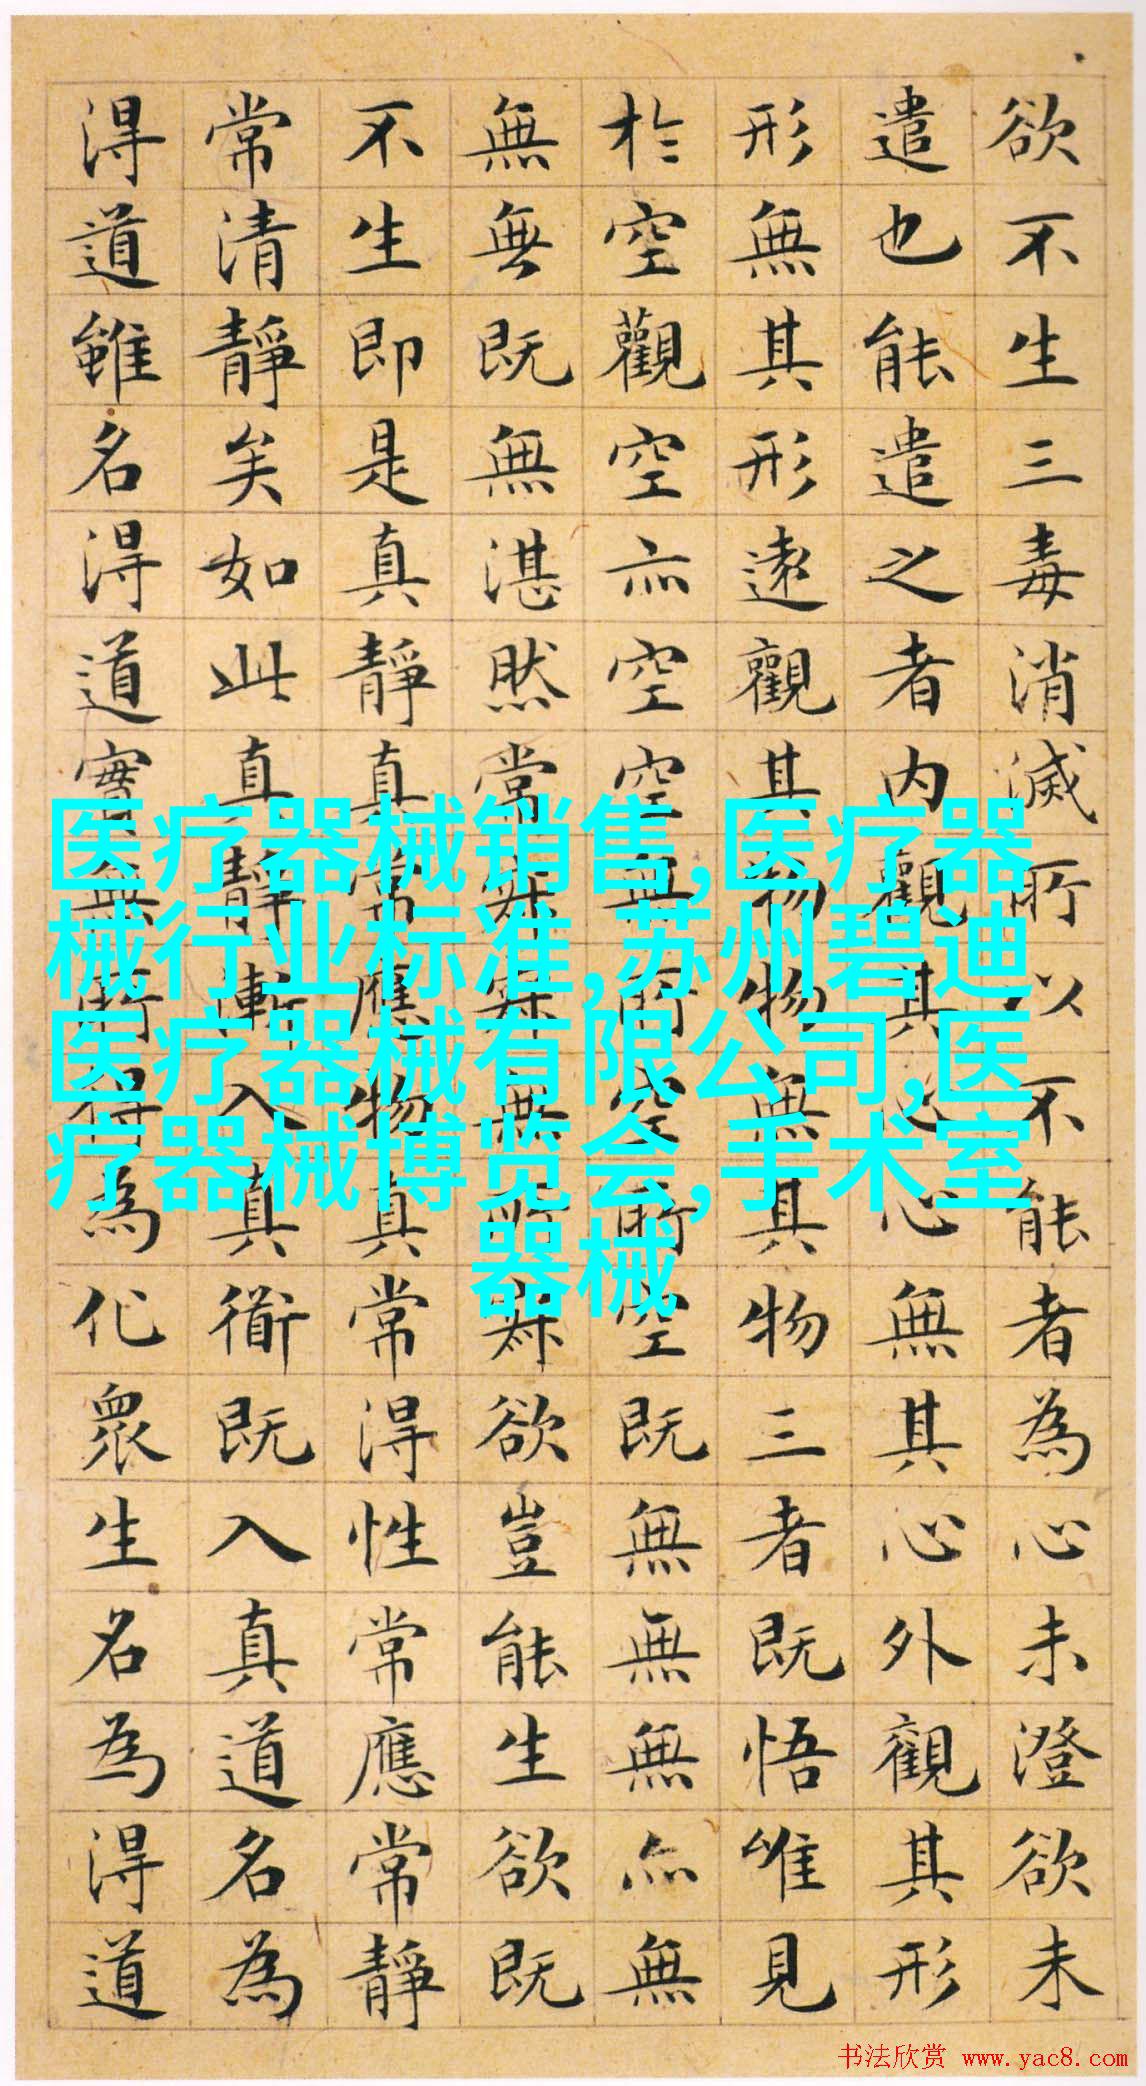 欲不生三毒消滅所以不能者為心未澄欲未
遣也能遣之者内觀其心心無其心外觀其形
形無其形遠觀其物物無其物三者既悟唯見
於空觀空亦空空無所空所空既無無無亦無
無無既無湛然常寂寂無所寂欲豈能生欲既
不生即是真靜真常應物真常得性常應常靜
常清靜矣如此真靜漸入真衜既入真道名為
得道雖名得道實無所得為化眾生名為得道
医疗器械销售,医疗器
械行业标准,苏州碧迪
医疗器械有限公司,医
疗器械博览会,手术室
器械
书法欣赏 www.yac8.com